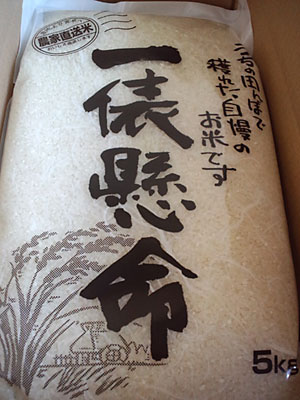 農家直送米
一俵懸命
うちの田んぼで
穫れた自慢の
お米です
5kg